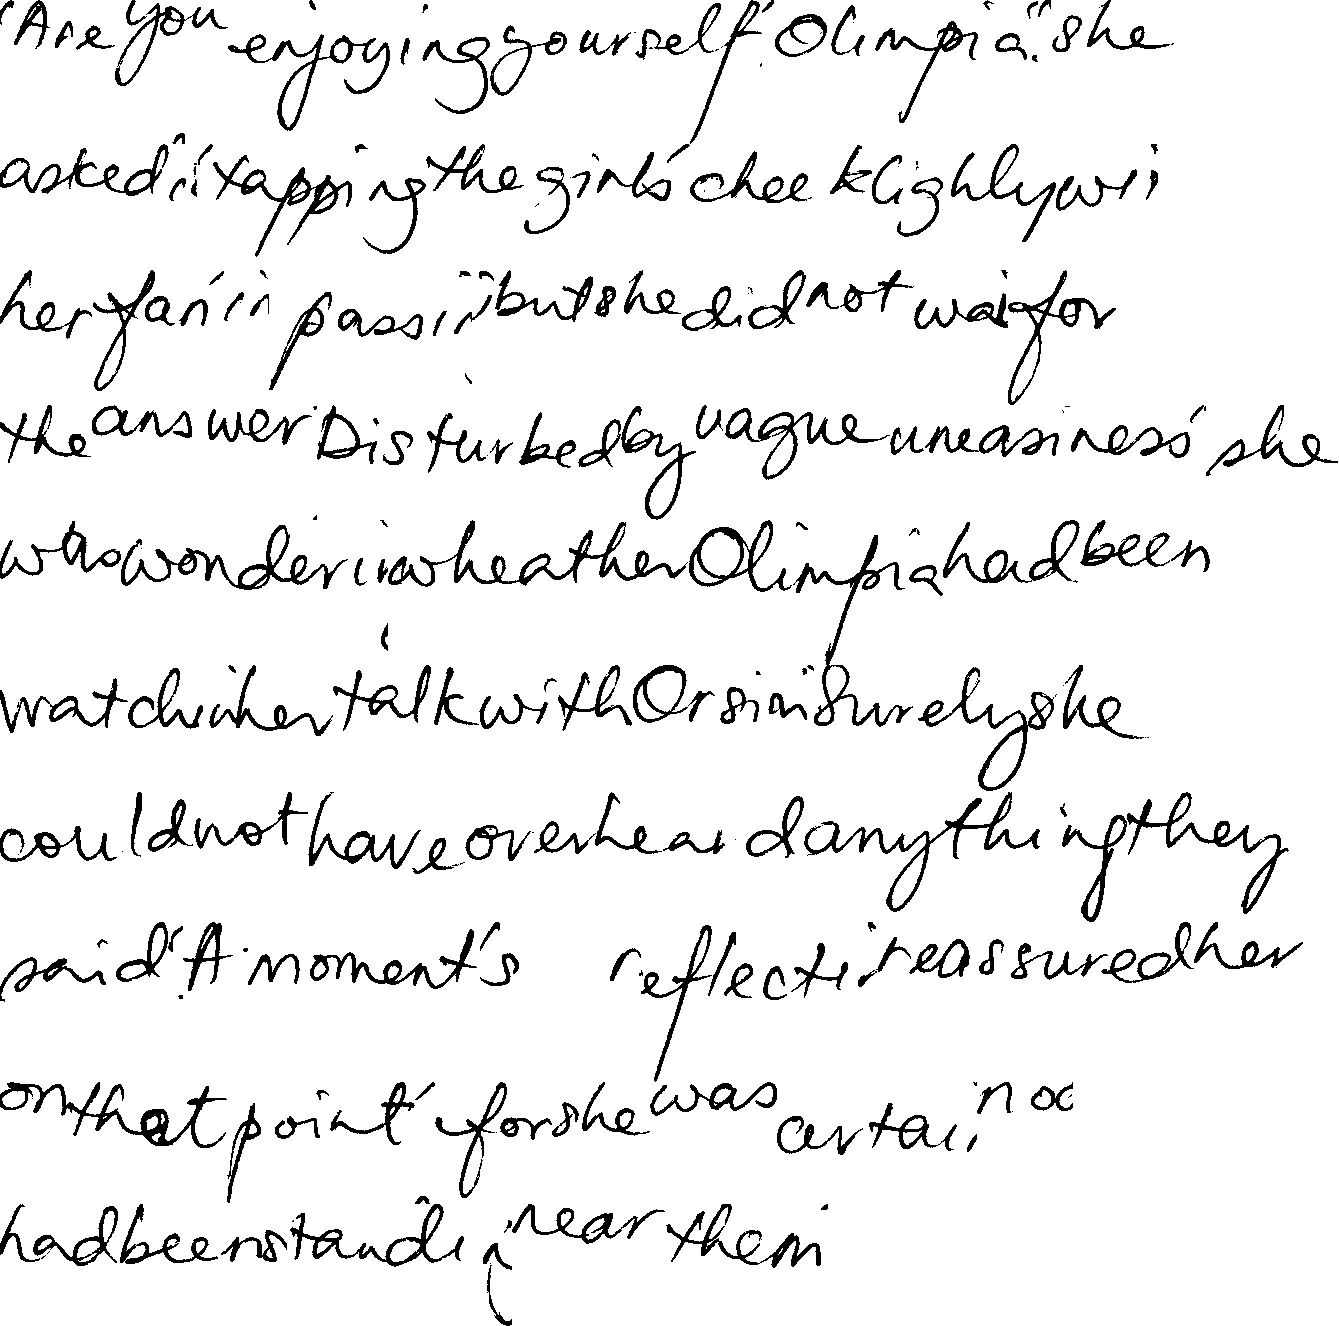 "Are you enjoying yourself Olimpia." she
asked, tapping the girl's cheek lighly wi
her fan in passi but she did not wai for
the answer Disturbed by vague uneasiness she
was wonderin wheather Olimpia had been
watchin her talk with Orsini Surely she
could not have overheard anything they
said. A moment's reflecti reassured her
on that point for she was certain no
had been standin near them